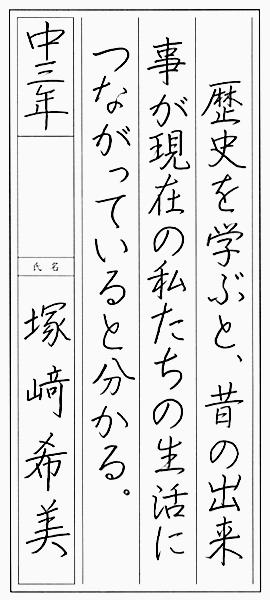 歴史を学ぶと、昔の出来
事が現在の私たちの生活に
つながっていると分かる。
中三年
氏名
塚﨑希美